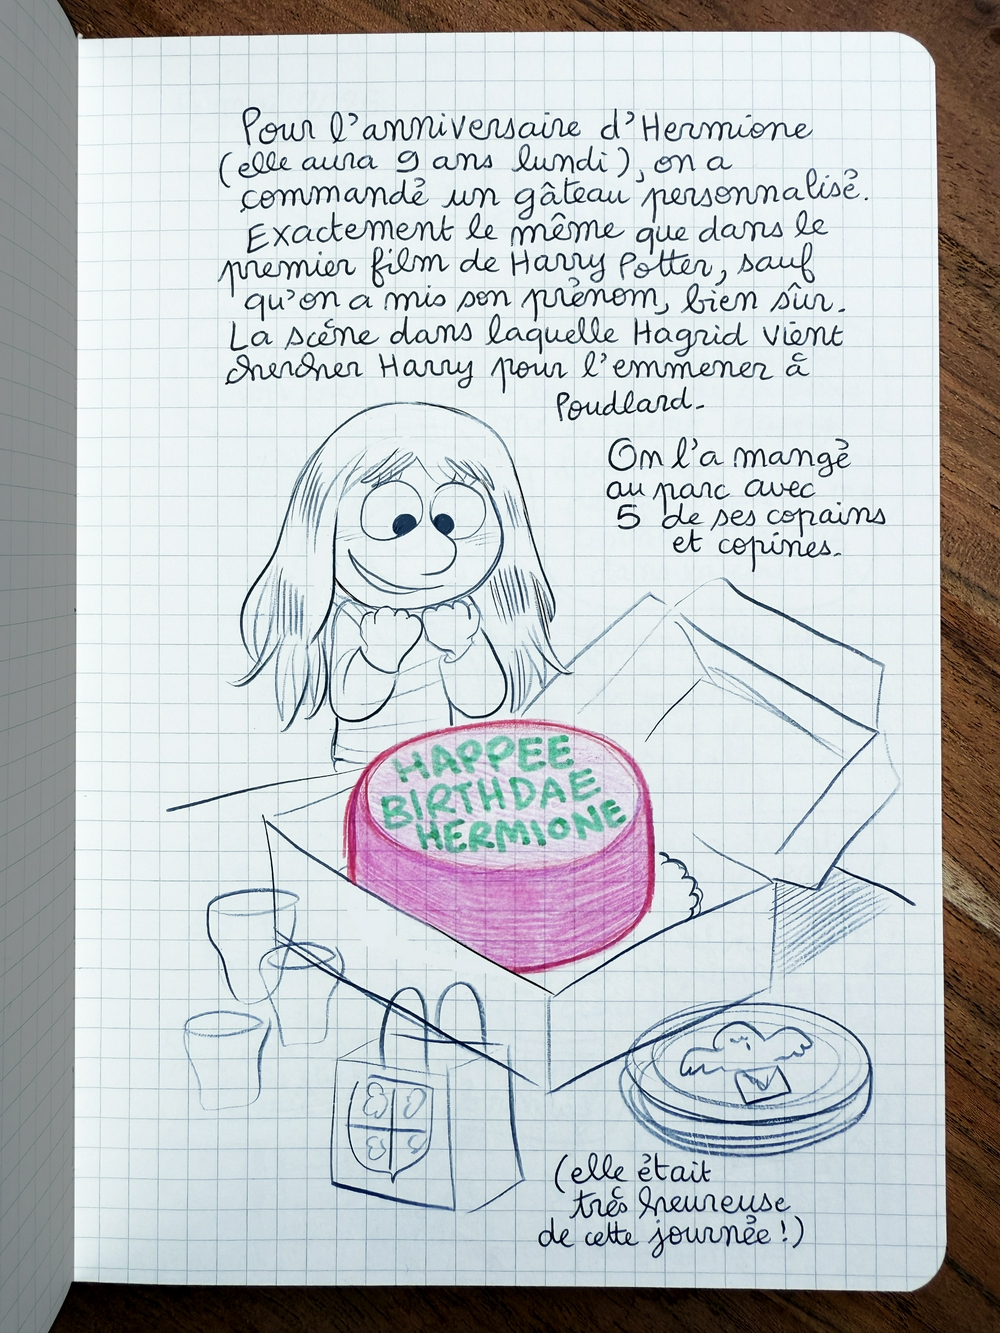 Pour l'anniversaire d'Hermione
(elle aura 9 ans lundi), on a
commandé un gâteau personnalisé.
Exactement le même que dans le
premier film de Harry Potter, sauf
qu'on a mis son prénom, bien sûr.
La scène dans laquelle Hagrid vient
chercher Harry pour l'emmener à
Poudlard.
On l'a mangé
au parc avec
5 de ses copains
et copines.
HAPPEE
BIRTHDAE
HERMIONE
(elle était
très heureuse
de cette journée !)